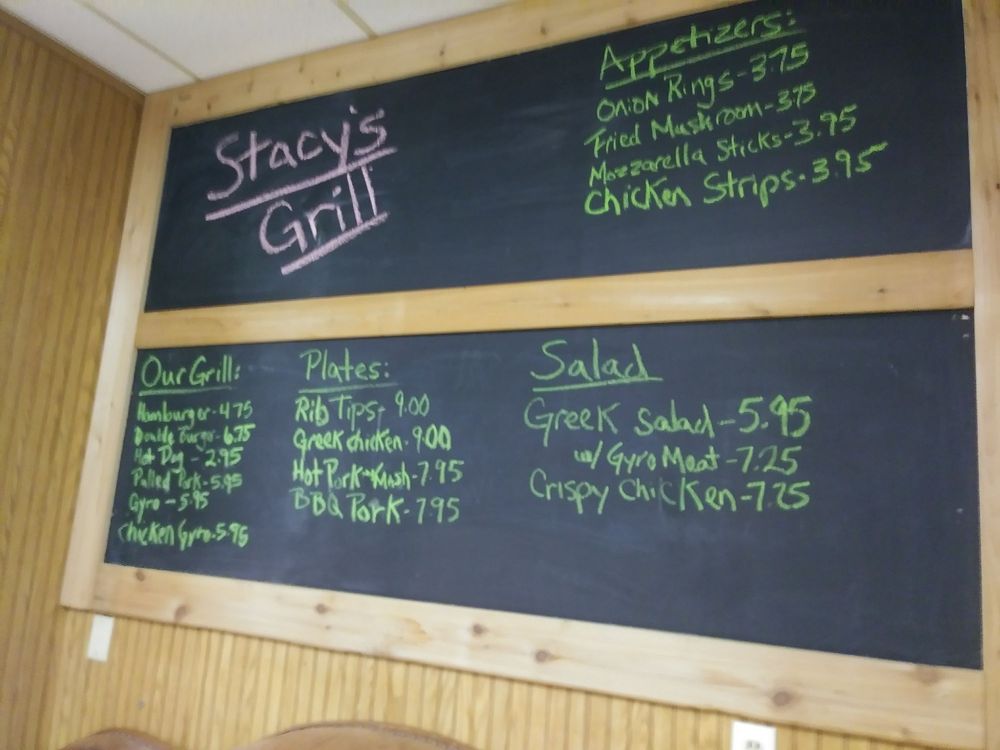 Stacy's
Grill
Appetizers:
Onion Rings-3.75
Fried Mushroom-3.75
Mozzarella Sticks-3.95
Chicken Strips-3.95
Our Grill:
Hamburger-4.75
Double Burger-6.75
Hot Dog-2.95
Pulled Pork-5.95
Gyro-5.95
Chicken Gyro-5.95
Plates:
Rib Tips-9.00
Greek Chicken-9.00
Hot Pork Mash-7.95
BBQ Pork-7.95
Salad
Greek Salad-5.95
w/ Gyro Meat-7.25
Crispy Chicken-7.25